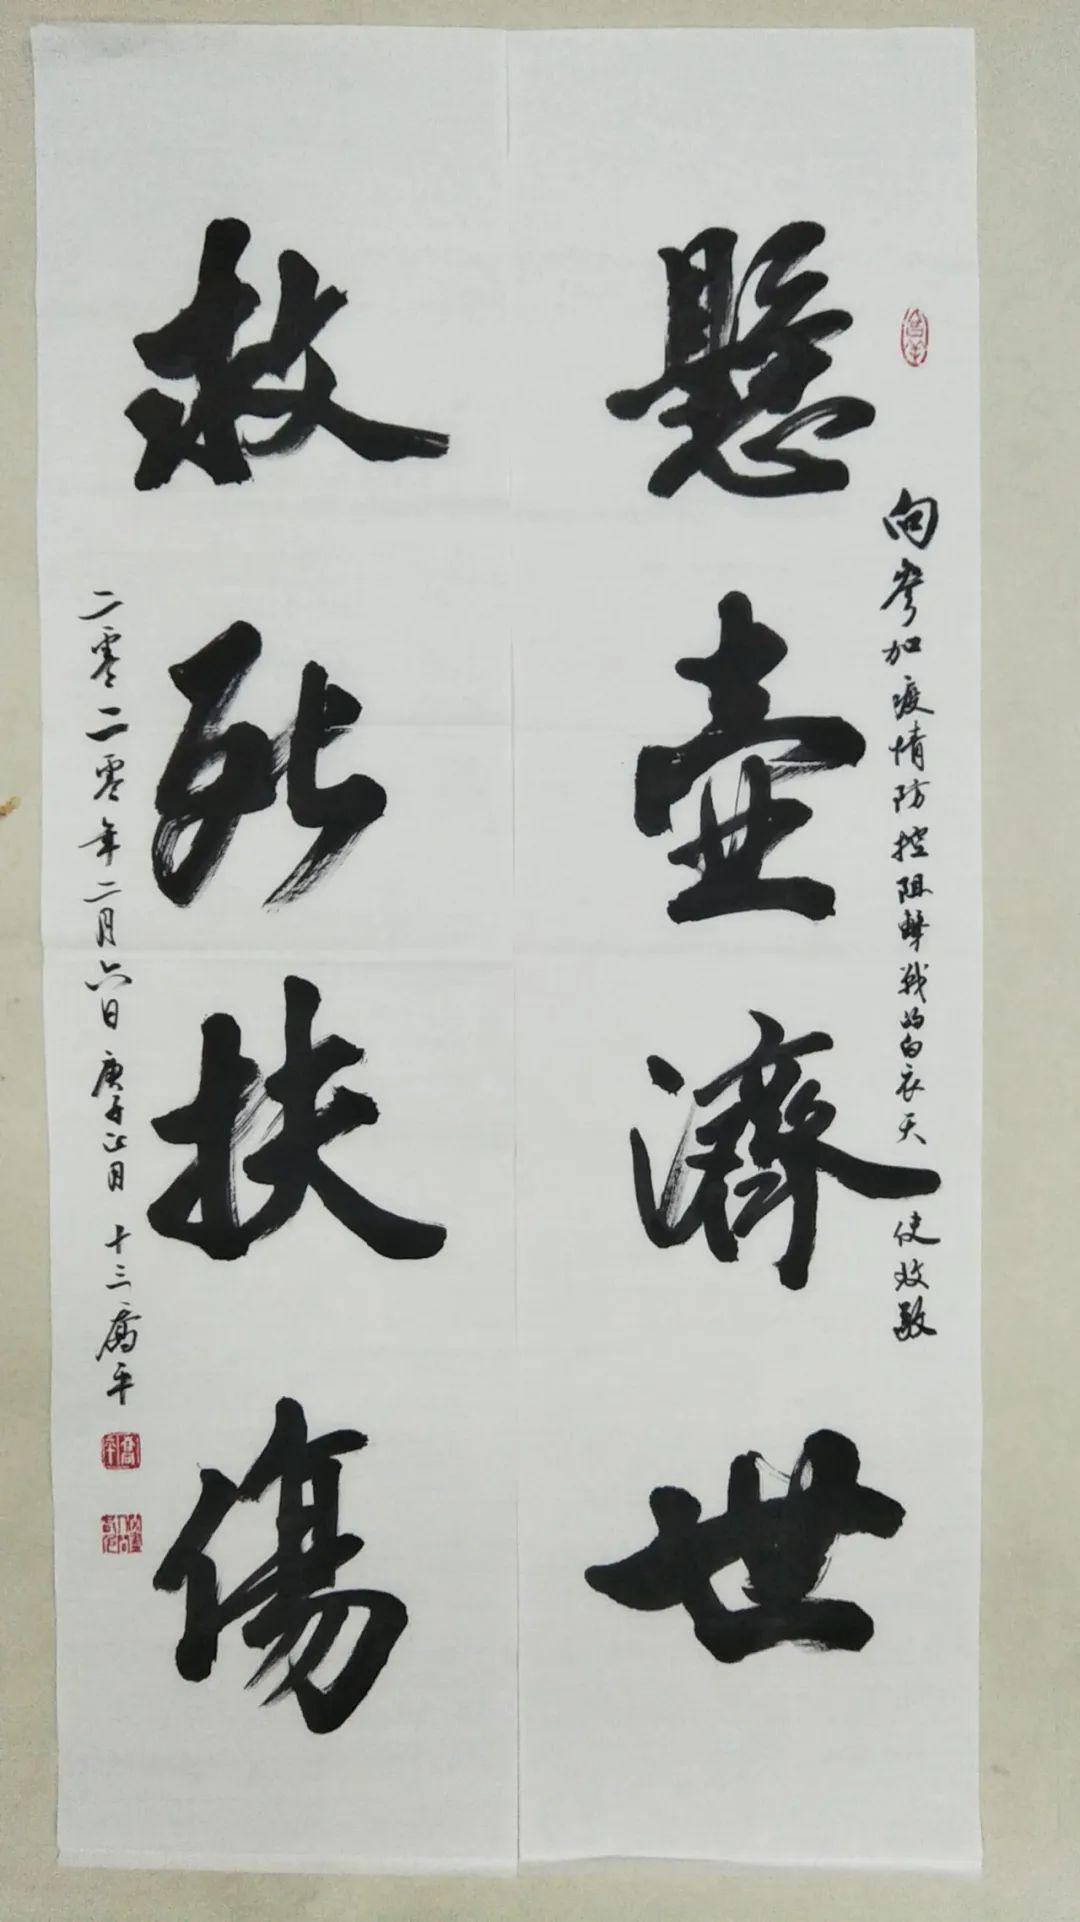 向参加疫情防控阻击战的白衣天使致敬
懸壺濟世
救死扶傷
二零二零年二月六日庚子正月十三喬平
喬平